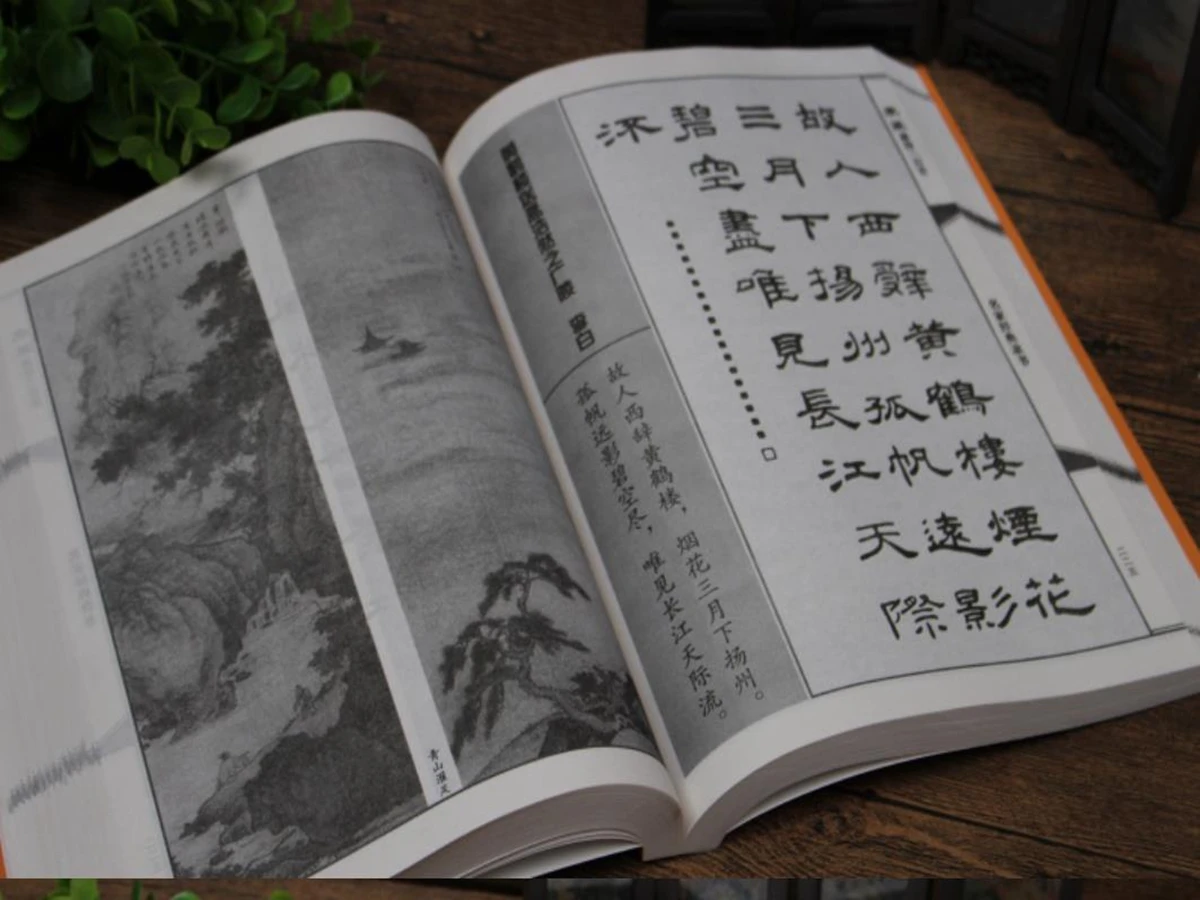 故人西辭黄鶴樓煙花
三月下揚州孤帆遠影
碧空盡唯見長江天際
流
黄鹤楼送孟浩然之广陵 李白
故人西辞黄鹤楼，烟花三月下扬州。
孤帆远影碧空尽，唯见长江天际流。
青山濯足